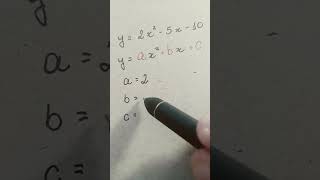 y = 2x² - 5x - 10
y = ax² + bx + c
a = 2
b =
c =